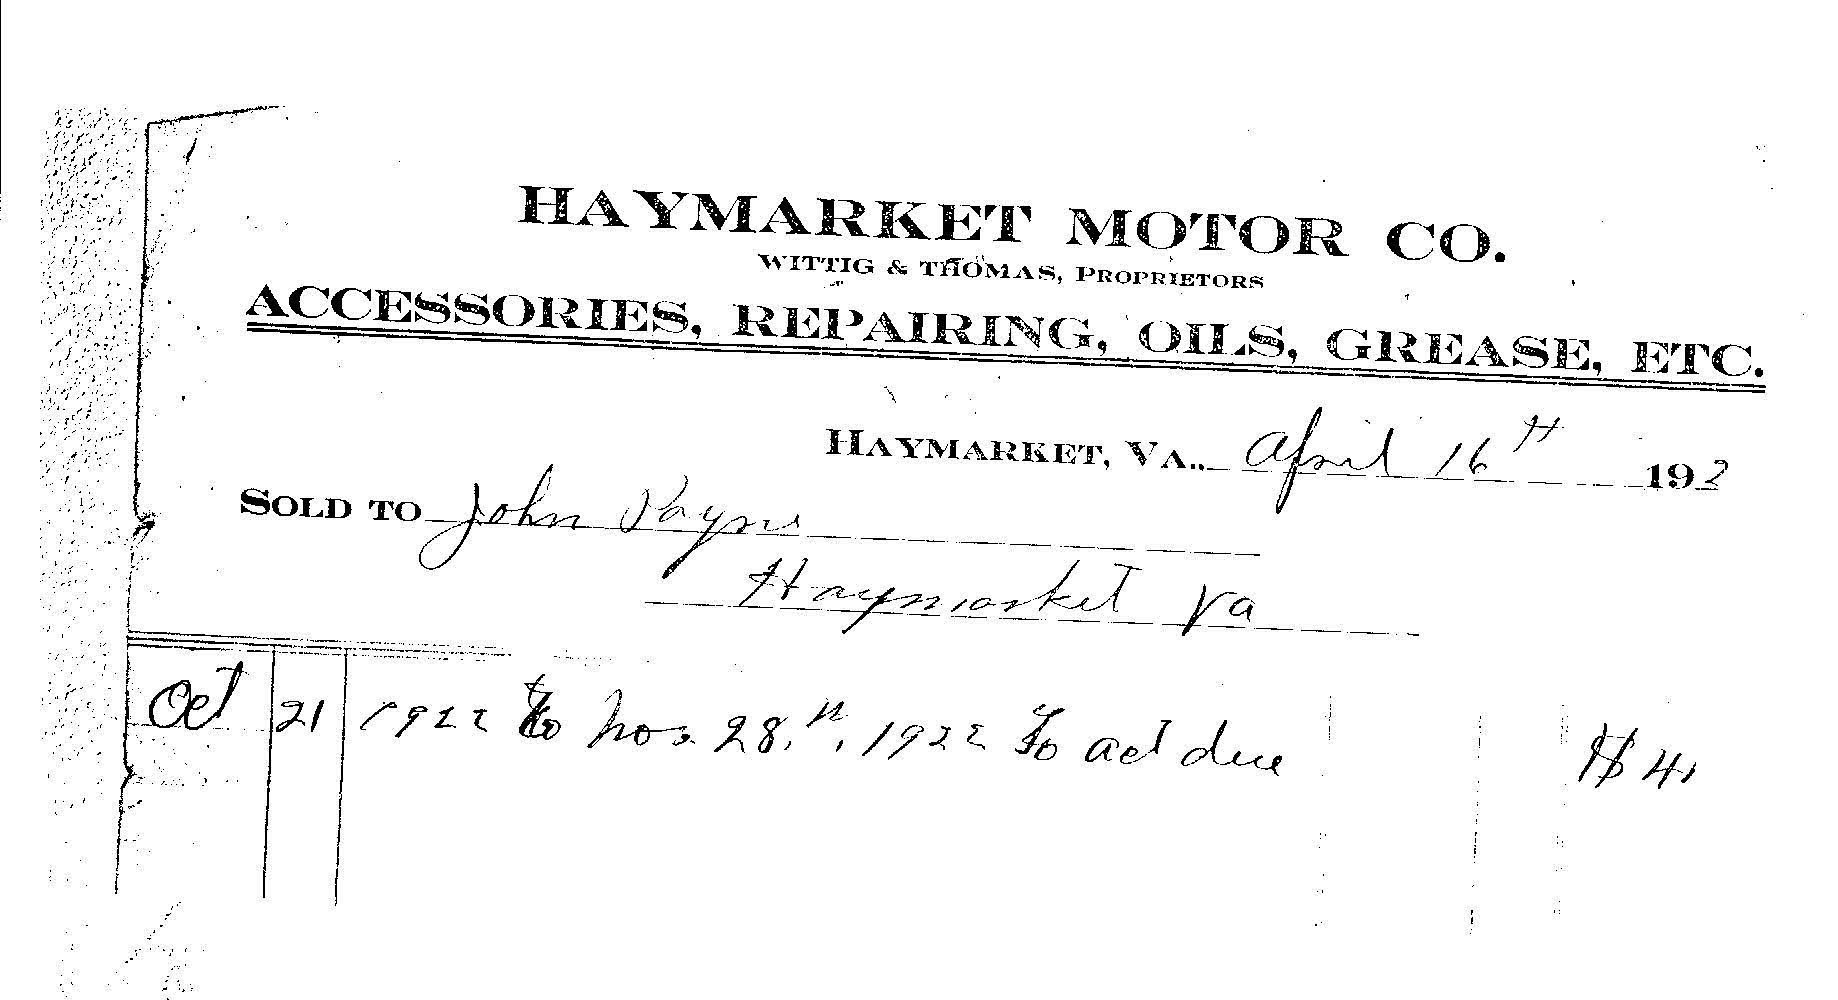 HAYMARKET MOTOR CO.
WITTIG & THOMAS, PROPRIETORS
ACCESSORIES, REPAIRING, OILS, GREASE, ETC.
HAYMARKET, VA., April 16th 1923
SOLD TO John Payne
Haymarket Va
Oct 21 1922 to Nov 28th, 1922 To act due $4